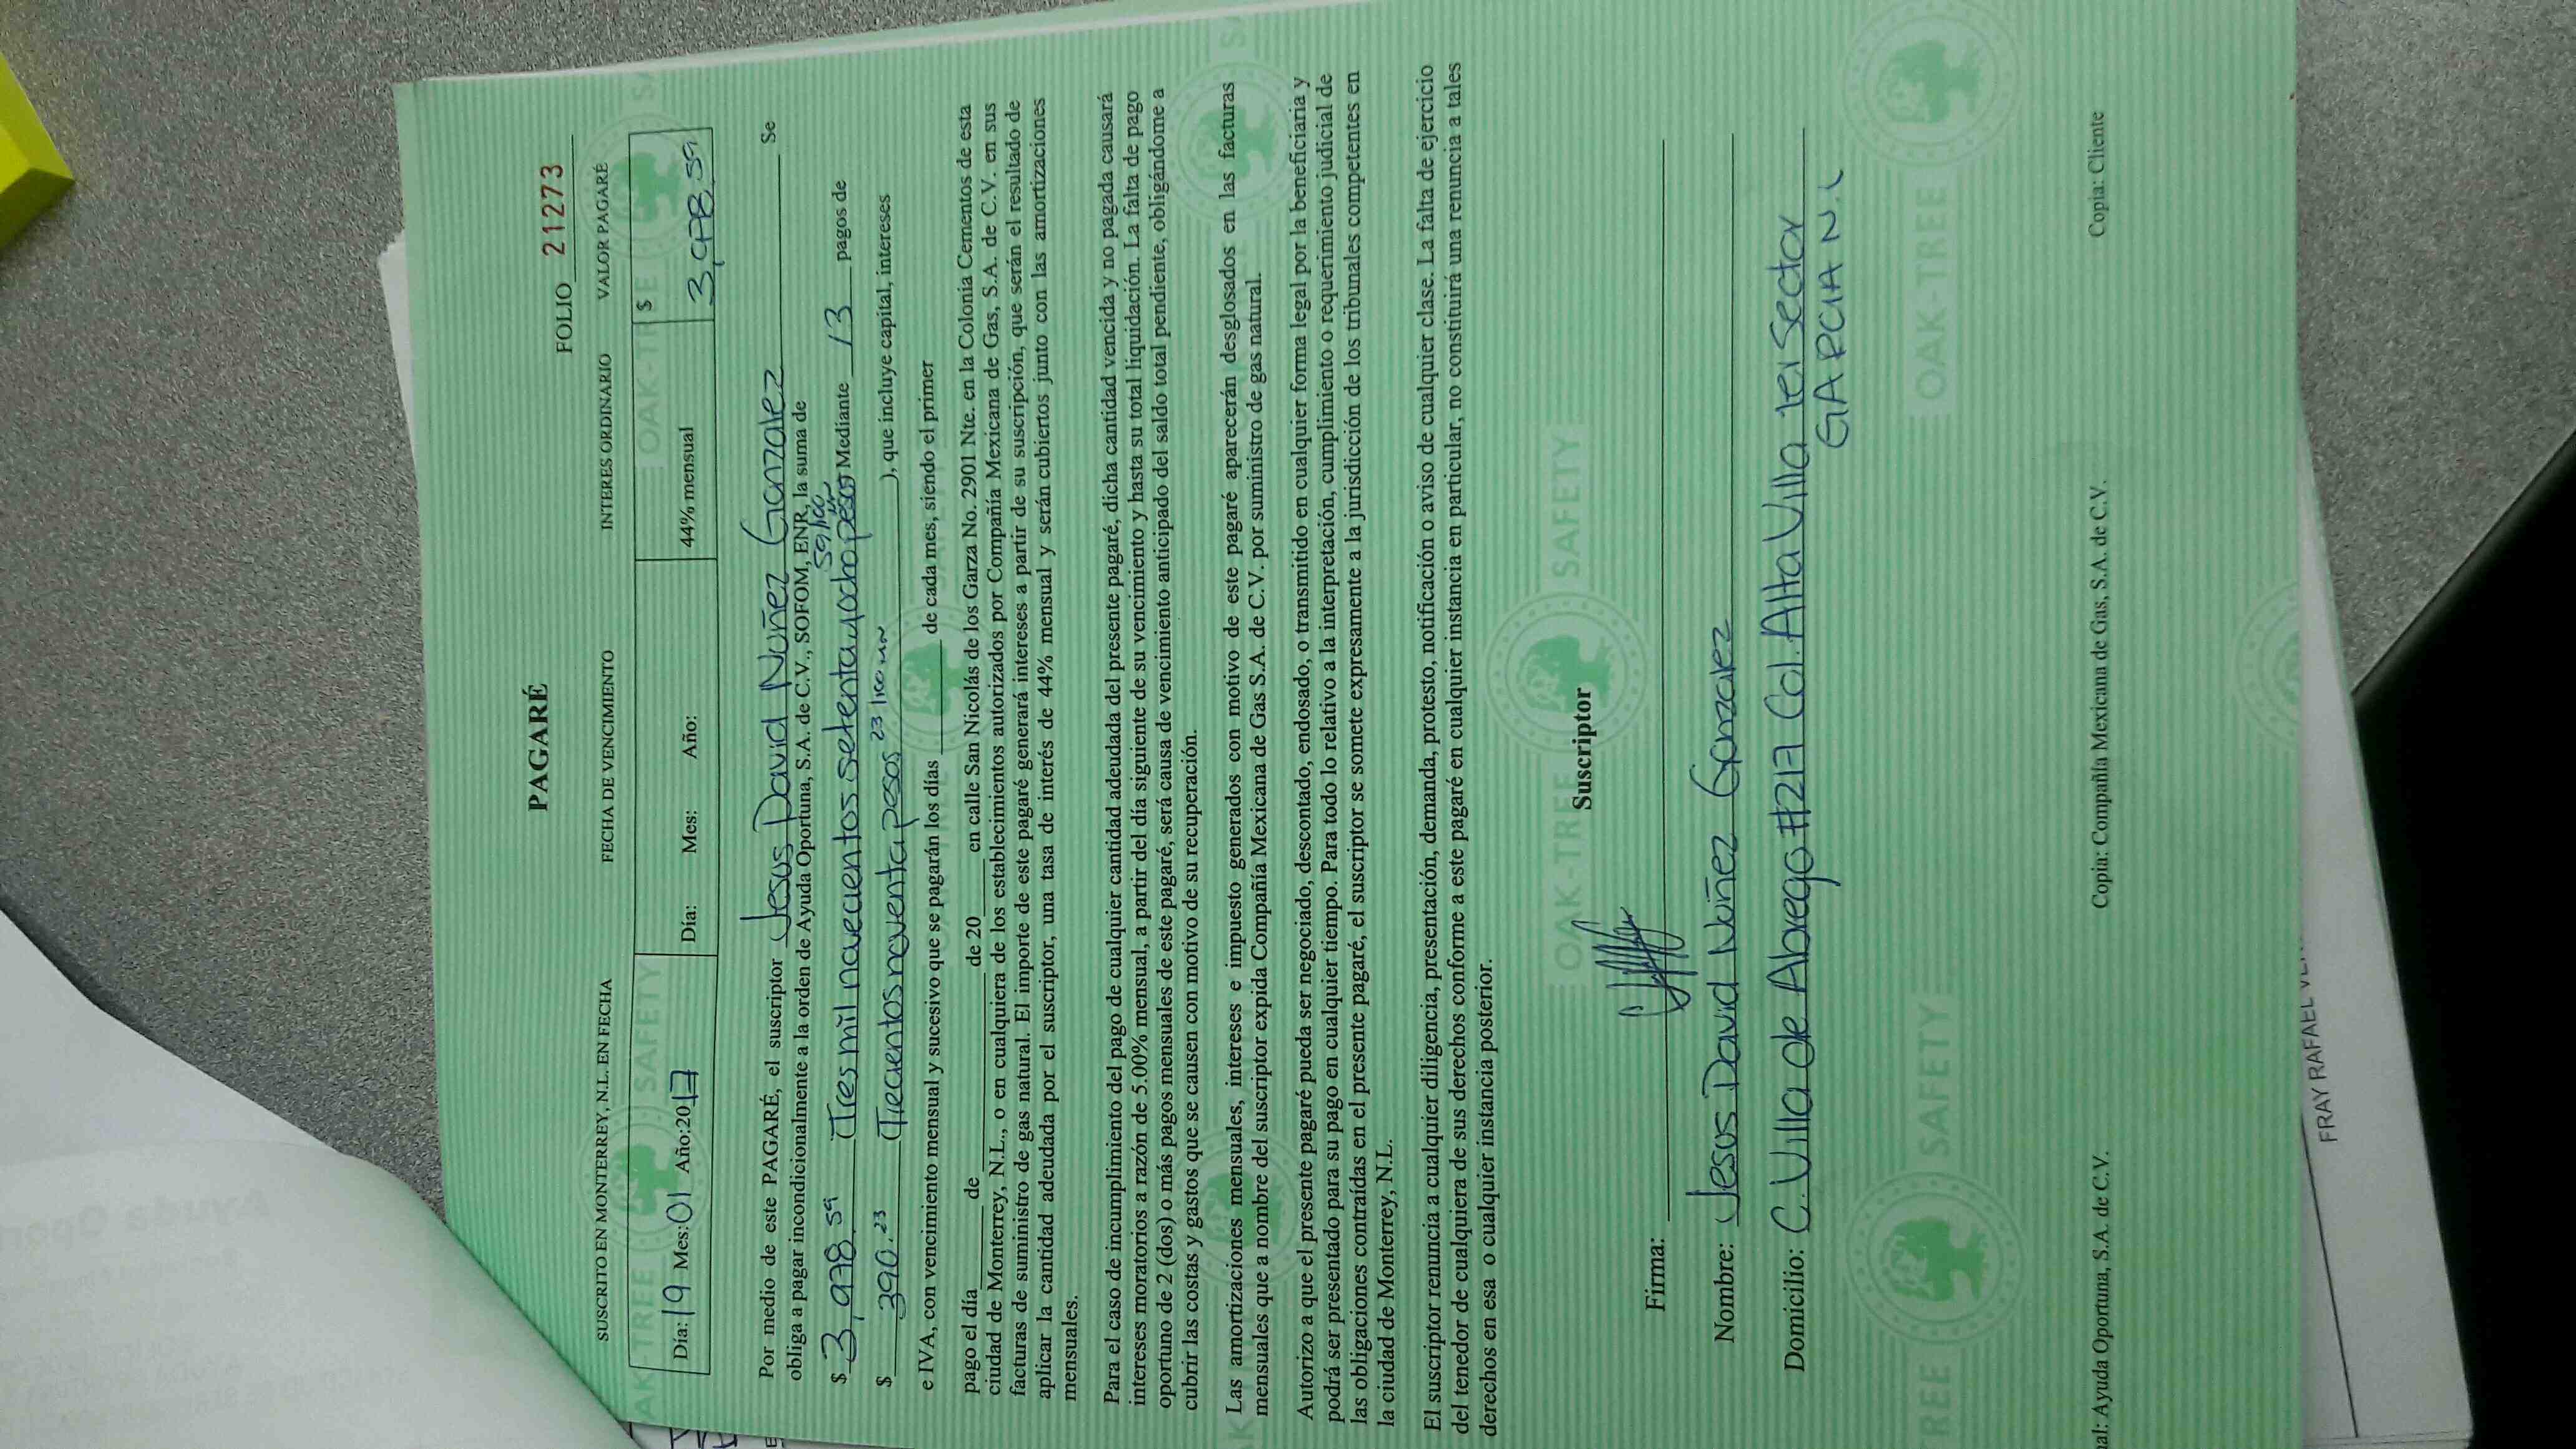 PAGARÉ
FOLIO 21273
SUSCRITO EN MONTERREY, N.L. EN FECHA FECHA DE VENCIMIENTO INTERES ORDINARIO VALOR PAGARÉ
Día: 19 Mes: 01 Año:2017 Día: Mes: Año: 44% mensual $ 3,978.59
Por medio de este PAGARÉ, el suscriptor Jesus David Nuñez Gonzalez Se
obliga a pagar incondicionalmente a la orden de Ayuda Oportuna, S.A. de C.V., SOFOM, ENR, la suma de
$ 3,978.59 (Tres mil novecientos setenta y ocho pesos 59/100 Mediante 13 pagos de
$ 390.23 (Trecientos noventa pesos 23/100 mn ), que incluye capital, intereses
e IVA, con vencimiento mensual y sucesivo que se pagarán los días de cada mes, siendo el primer
pago el día de de 20 en calle San Nicolás de los Garza No. 2901 Nte. en la Colonia Cementos de esta
ciudad de Monterrey, N.L., o en cualquiera de los establecimientos autorizados por Compañía Mexicana de Gas, S.A. de C.V. en sus
facturas de suministro de gas natural. El importe de este pagaré generará intereses a partir de su suscripción, que serán el resultado de
aplicar la cantidad adeudada por el suscriptor, una tasa de interés de 44% mensual y serán cubiertos junto con las amortizaciones
mensuales.
Para el caso de incumplimiento del pago de cualquier cantidad adeudada del presente pagaré, dicha cantidad vencida y no pagada causará
intereses moratorios a razón de 5.00% mensual, a partir del día siguiente de su vencimiento y hasta su total liquidación. La falta de pago
oportuno de 2 (dos) o más pagos mensuales de este pagaré, será causa de vencimiento anticipado del saldo total pendiente, obligándome a
cubrir las costas y gastos que se causen con motivo de su recuperación.
Las amortizaciones mensuales, intereses e impuesto generados con motivo de este pagaré aparecerán desglosados en las facturas
mensuales que a nombre del suscriptor expida Compañía Mexicana de Gas S.A. de C.V. por suministro de gas natural.
Autorizo a que el presente pagaré pueda ser negociado, descontado, endosado, o transmitido en cualquier forma legal por la beneficiaria y
podrá ser presentado para su pago en cualquier tiempo. Para todo lo relativo a la interpretación, cumplimiento o requerimiento judicial de
las obligaciones contraídas en el presente pagaré, el suscriptor se somete expresamente a la jurisdicción de los tribunales competentes en
la ciudad de Monterrey, N.L.
El suscriptor renuncia a cualquier diligencia, presentación, demanda, protesto, notificación o aviso de cualquier clase. La falta de ejercicio
del tenedor de cualquiera de sus derechos conforme a este pagaré en cualquier instancia en particular, no constituirá una renuncia a tales
derechos en esa o cualquier instancia posterior.
Suscriptor
Firma:
Nombre: Jesus David Nuñez Gonzalez
Domicilio: C. Villa de Abrego #217 Col. Alta Villa 1er Sector
GARCIA N.L
Ayuda Oportuna, S.A. de C.V. Copia: Compañía Mexicana de Gas, S.A. de C.V. Copia: Cliente
OAK-TREE SAFETY
FRAY RAFAEL